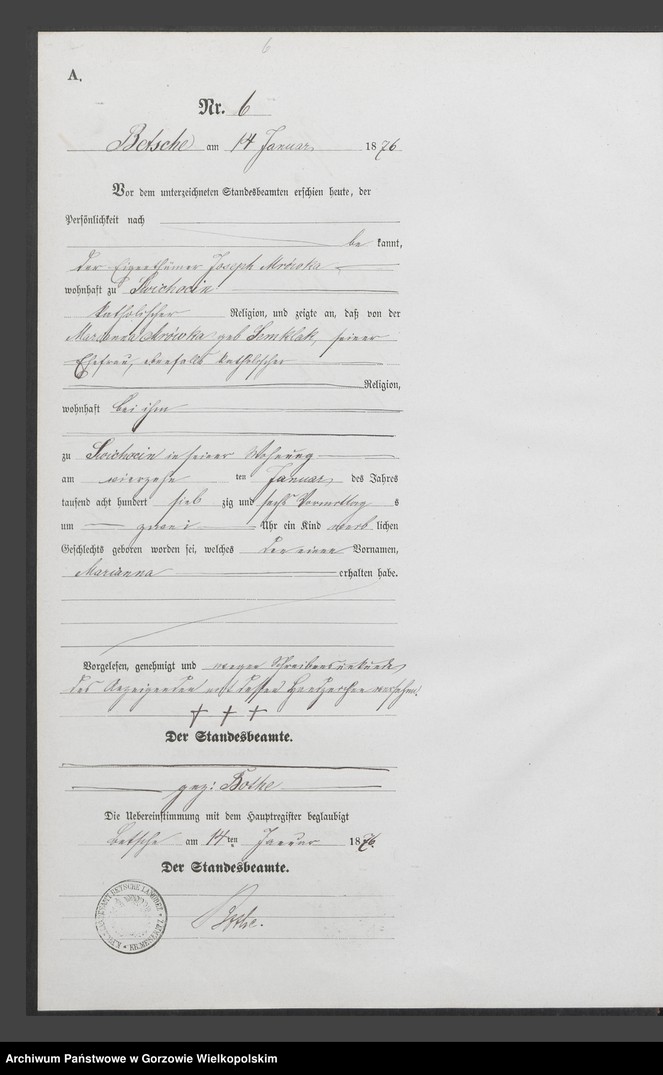 6
A.
Nr. 6
Betsche am 14 Januar 1876
Vor dem unterzeichneten Standesbeamten erschien heute, der
Persönlichkeit nach
be kannt,
der Eigenthümer Joseph Mrówka
wohnhaft zu Swichocin
katholischer Religion, und zeigte an, daß von der
Marianna Mrówka geb Semklak, seiner
Ehefrau, ebenfalls katholischer
Religion,
wohnhaft bei ihm
zu Swichocin in seiner Wohnung
am vierzehn ten Januar des Jahres
tausend acht hundert sieb zig und sechs Vormittag s
um zwei Uhr ein Kind weib lichen
Geschlechts geboren worden sei, welches den einen Vornamen,
Marianna erhalten habe.
Vorgelesen, genehmigt und wegen Schreibensunkunde
des Anzeigenden mit dessen Handzeichen versehen.
† † †
Der Standesbeamte.
gez: Bothe
Die Uebereinstimmung mit dem Hauptregister beglaubigt
Betsche am 14ten Januar 1876.
Der Standesbeamte.
Bothe.
Archiwum Państwowe w Gorzowie Wielkopolskim